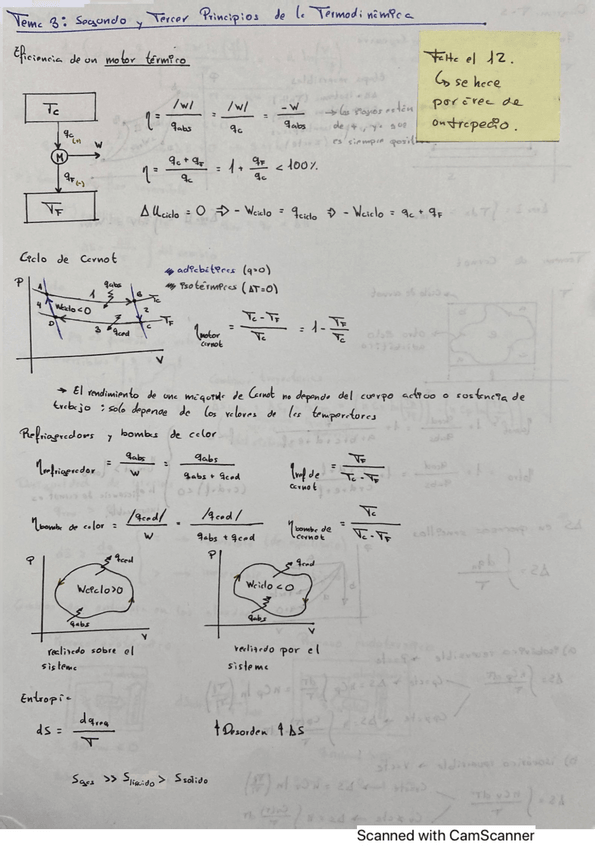 Tema 3: Segundo y Tercer Principios de la Termodinámica
Falta el 12.
↳ se hace
por área de
ontropedio.
Eficiencia de un motor térmico
T_C
q_C (+)
M → W
q_F (-)
T_F
η = /W/ / q_abs = /W/ / q_C = -W / q_abs
es siempre
η = (q_C + q_F) / q_C = 1 + q_F / q_C < 100%
ΔU_ciclo = 0 ⇒ - W_ciclo = q_ciclo ⇒ - W_ciclo = q_C + q_F
Ciclo de Carnot
adiabáticas (q=0)
isotérmicas (ΔT=0)
P
A 1 q_abs B T_C
4 W_ciclo<0 2
D 3 q_ced C T_F
V
η_motor carnot = (T_C - T_F) / T_C = 1 - T_F / T_C
→ El rendimiento de una máquina de Carnot no depende del cuerpo activo o sustancia de
trabajo: solo depende de los valores de las temperaturas
Refrigeradores y bombas de calor
η_refrigerador = q_abs / W = q_abs / (q_abs + q_ced)
η_ref de carnot = T_F / (T_C - T_F)
η_bomba de calor = /q_ced/ / W = /q_ced/ / (q_abs + q_ced)
η_bomba de carnot = T_C / (T_C - T_F)
P
q_ced
W_ciclo>0
q_abs
V
realizado sobre el
sistema
P
q_ced
W_ciclo<0
q_abs
V
realizado por el
sistema
Entropía
dS = dq_rev / T
↑Desorden ↑ΔS
S_gas >> S_líquido > S_sólido
Scanned with CamScanner